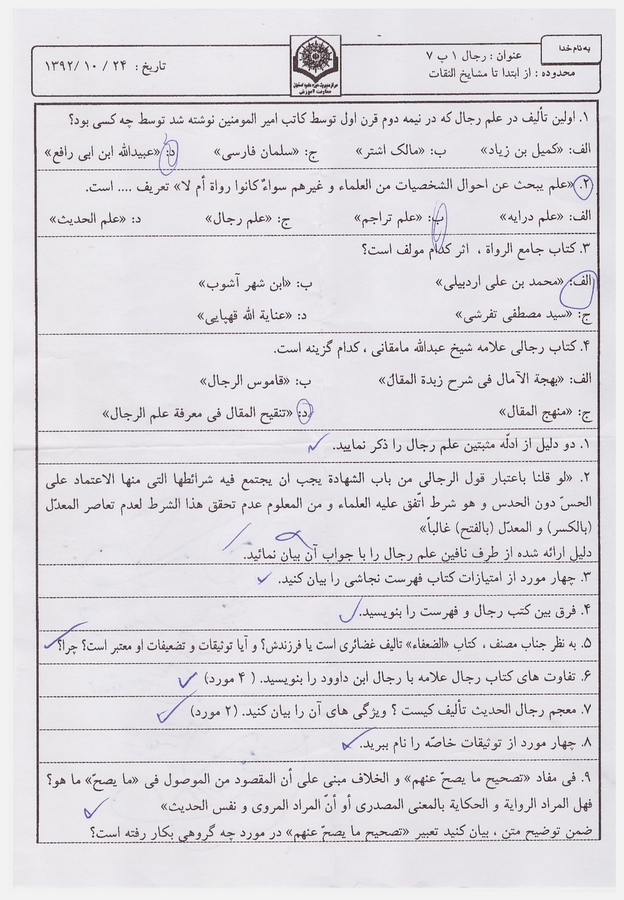 به نام خدا
عنوان : رجال ۱ ب ۷
محدوده : از ابتدا تا مشایخ الثقات
تاریخ : ۲۴ / ۱۰ / ۱۳۹۲
۱. اولین تألیف در علم رجال که در نیمه دوم قرن اول توسط کاتب امیر المومنین نوشته شد توسط چه کسی بود؟
الف: «کمیل بن زیاد» ب: «مالک اشتر» ج: «سلمان فارسی» د: «عبیدالله ابن ابی رافع»
۲. «علم یبحث عن احوال الشخصیات من العلماء و غیرهم سواءٌ کانوا رواة أم لا» تعریف .... است.
الف: «علم درایه» ب: «علم تراجم» ج: «علم رجال» د: «علم الحدیث»
۳. کتاب جامع الرواة ، اثر کدام مولف است؟
الف: «محمد بن علی اردبیلی» ب: «ابن شهر آشوب»
ج: «سید مصطفی تفرشی» د: «عنایة الله قهپایی»
۴. کتاب رجالی علامه شیخ عبدالله مامقانی ، کدام گزینه است.
الف: «بهجة الآمال فی شرح زبدة المقال» ب: «قاموس الرجال»
ج: «منهج المقال» د: «تنقیح المقال فی معرفة علم الرجال»
۱. دو دلیل از ادلّه مثبتین علم رجال را ذکر نمایید.
۲. «لو قلنا باعتبار قول الرجالی من باب الشهادة یجب ان یجتمع فیه شرائطها التی منها الاعتماد علی
الحسّ دون الحدس و هو شرط اتّفق علیه العلماء و من المعلوم عدم تحقق هذا الشرط لعدم تعاصر المعدّل
(بالکسر) و المعدّل (بالفتح) غالباً»
دلیل ارائه شده از طرف نافین علم رجال را با جواب آن بیان نمائید.
۳. چهار مورد از امتیازات کتاب فهرست نجاشی را بیان کنید.
۴. فرق بین کتب رجال و فهرست را بنویسید.
۵. به نظر جناب مصنف ، کتاب «الضعفاء» تالیف غضائری است یا فرزندش؟ و آیا توثیقات و تضعیفات او معتبر است؟ چرا؟
۶. تفاوت های کتاب رجال علامه با رجال ابن داوود را بنویسید. ( ۴ مورد)
۷. معجم رجال الحدیث تألیف کیست ؟ ویژگی های آن را بیان کنید. (۲ مورد)
۸. چهار مورد از توثیقات خاصّه را نام ببرید.
۹. فی مفاد «تصحیح ما یصحّ عنهم» و الخلاف مبنی علی أن المقصود من الموصول فی «ما یصحّ» ما هو؟
فهل المراد الروایة و الحکایة بالمعنی المصدری أو أنّ المراد المروی و نفس الحدیث»
ضمن توضیح متن ، بیان کنید تعبیر «تصحیح ما یصحّ عنهم» در مورد چه گروهی بکار رفته است؟